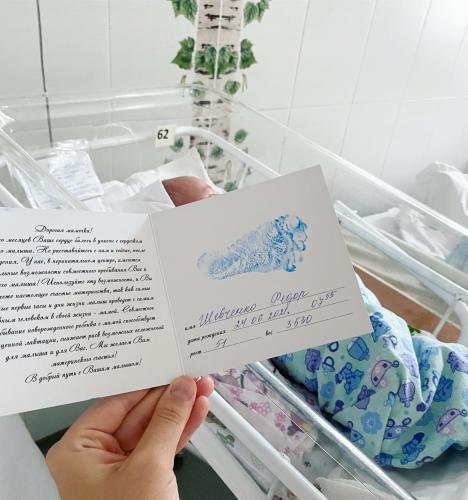 62
Дорогая мамочка!
месяцев Ваше сердце билось в унисон с сердцем
малыша. Не расставайтесь с ним и сейчас, после
У нас, в перинатальном центре, имеются
возможности совместного пребывания Вас и
малыша! Используйте эту возможность, и Вы
настоящее счастье материнства, так как самые
первые часы и дни жизни малыш проведет с самым
человеком в своей жизни - мамой. Совместное
новорожденного ребенка с мамой способствует
лактации, снижает риск возможных осложнений
для малыша и для Вас. Мы желаем Вам
материнского счастья!
В добрый путь с Вашим малышом!
имя Шевченко Федор
дата рождения 24.06.2021. 0755
рост 51 вес 3530